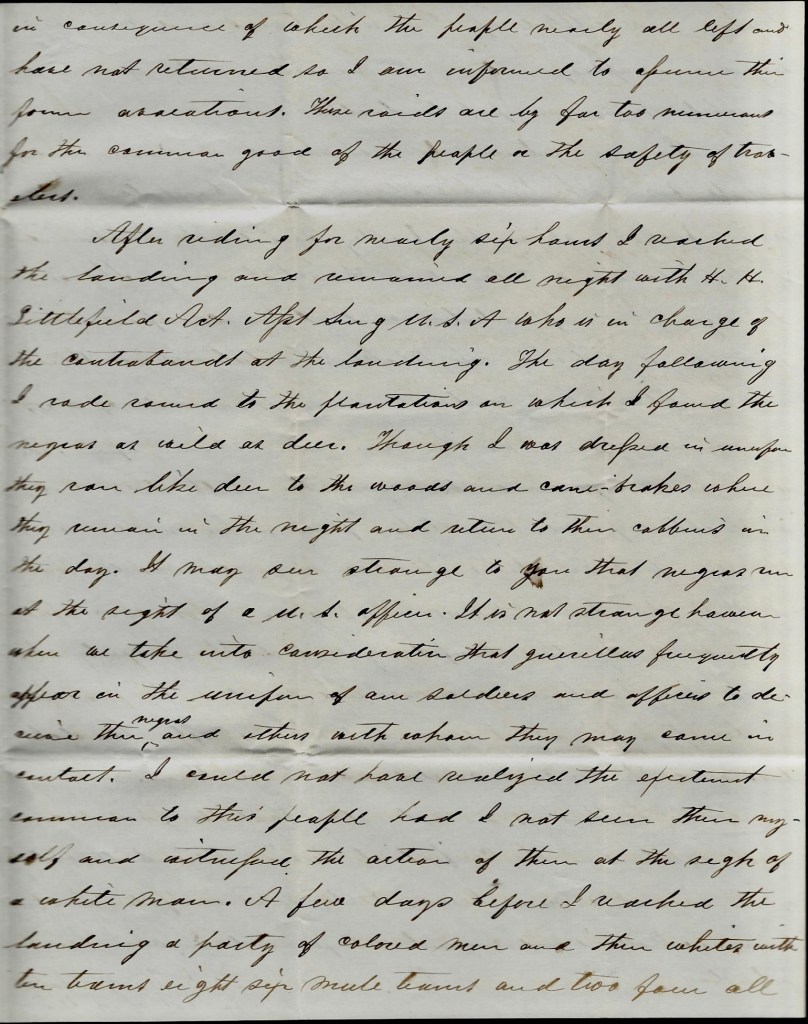 in consequence of which the people nearly all left and
have not returned so I am informed to assume their
former avocations. These raids are by far too numerous
for the common good of the people or the safety of trav-
elers.
After riding for nearly six hours I reached
the landing and remained all night with H. H.
Littlefield Act. Asst Surg U. S. A who is in charge of
the contrabands at the landing. The day following
I rode round to the plantations on which I found the
negros as wild as deer. Though I was dressed in uniform
they ran like deer to the woods and cane-brakes where
they remain in the night and return to their cabbins in
the day. It may seem strange to you that negros run
at the sight of a U. S. officer. It is not strange however
when we take into consideration that guerillas frequently
appear in the uniform of our soldiers and officers to de-
ceive the negros and others with whom they may come in
contact. I could not have realized the excitement
common to this people had I not seen them my-
self and witnessed the action of them at the sigh of
a white man. A few days before I reached the
landing a party of colored men and three whites with
ten teams eight six mule teams and two four all